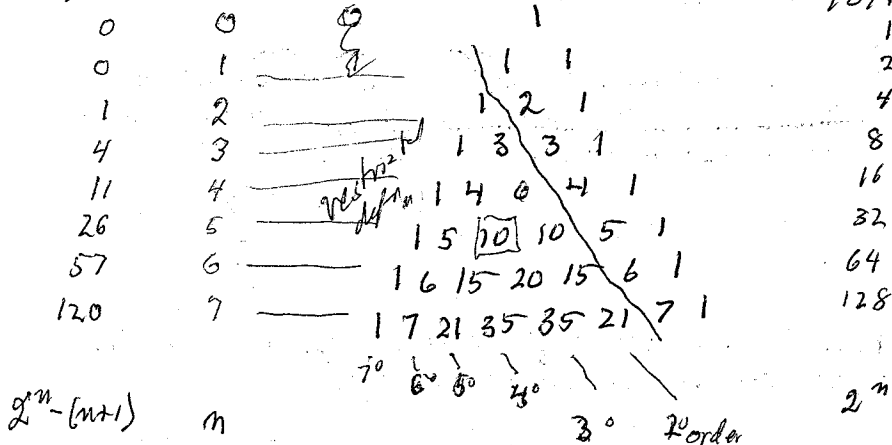 0 0 0 1 1
0 1 1 1 2
1 2 1 2 1 4
4 3 1 3 3 1 8
11 4 1 4 6 4 1 16
26 5 1 5 10 10 5 1 32
57 6 1 6 15 20 15 6 1 64
120 7 1 7 21 35 35 21 7 1 128
7° 6° 5° 4° 3° 2° order
2^n-(n+1) n 2^n